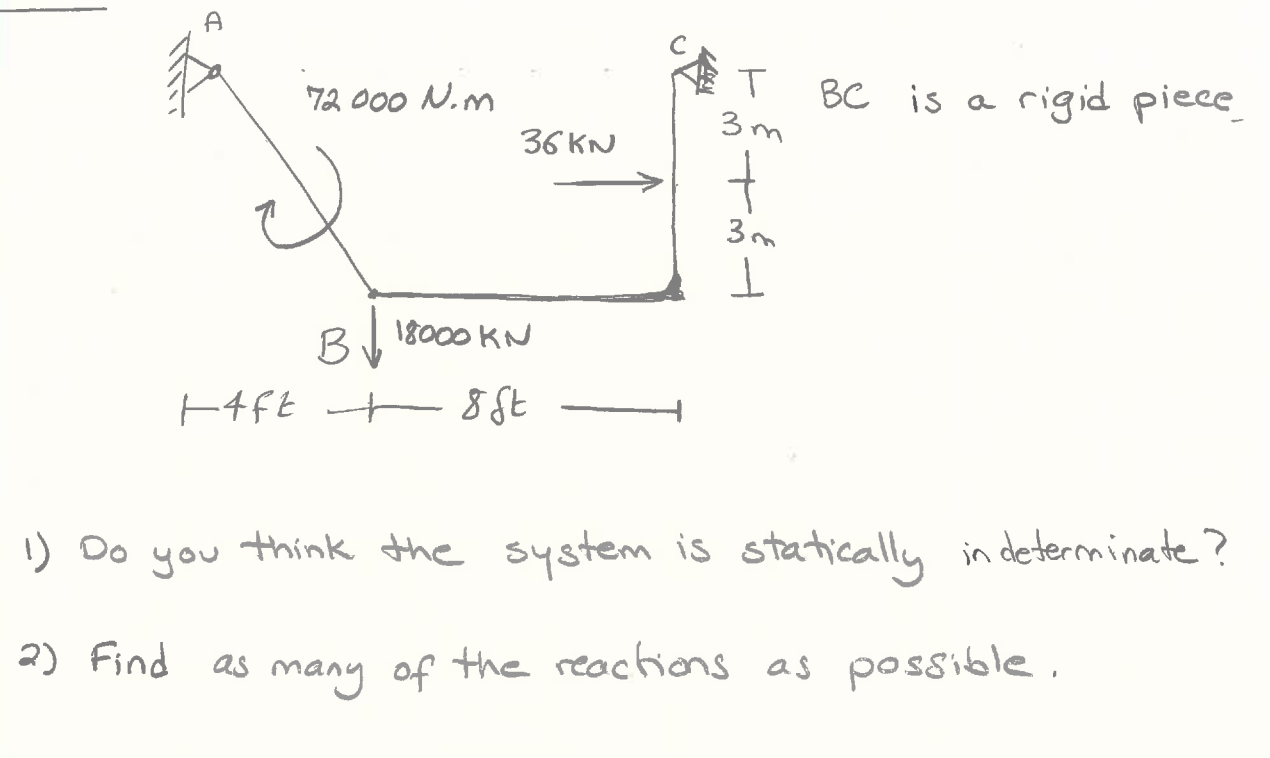 A
C
72 000 N.m
BC is a rigid piece
36 KN
3m
3m
B
18000 KN
4ft
8ft
1) Do you think the system is statically indeterminate?
2) Find as many of the reactions as possible.